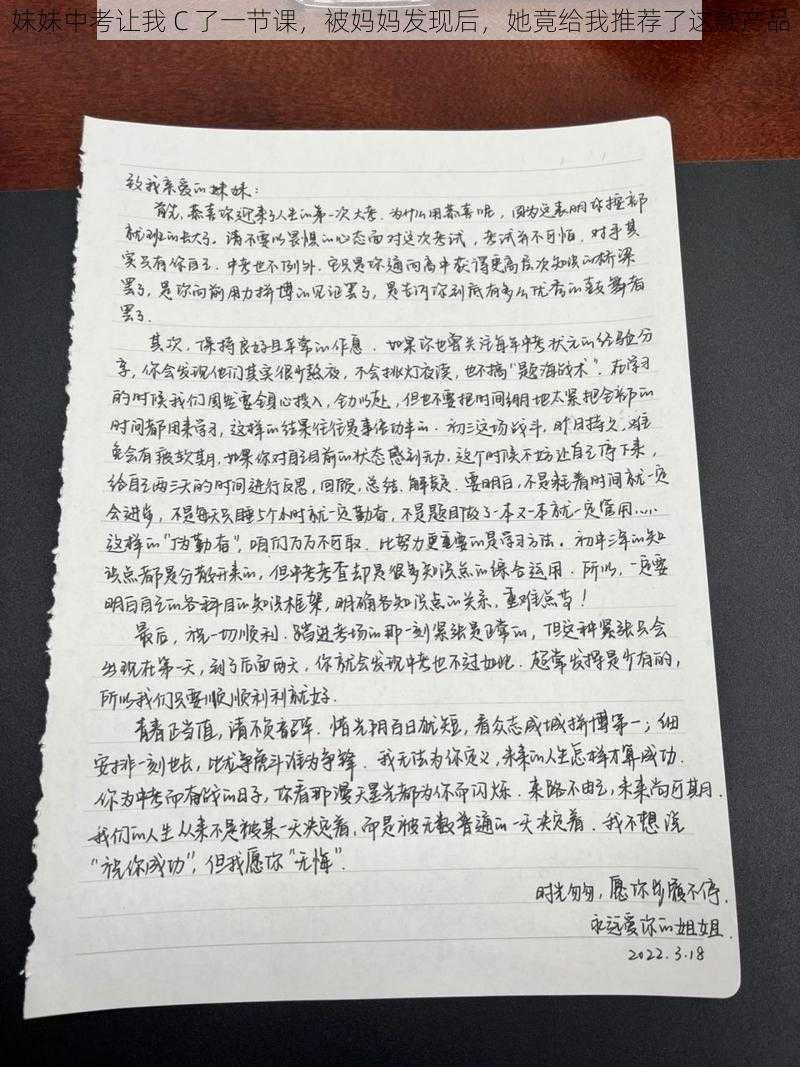 妹妹中考让我 C 了一节课，被妈妈发现后，她竟给我推荐了这款产品
致我亲爱的妹妹：
首先，恭喜你迎来了人生的第一次大考。为什么用恭喜呢，因为这表明你按部
就班的长大了。请不要以畏惧的心态面对这次考试，考试并不可怕，对手其
实只有你自己。中考也不例外，它只是你通向高中获得更高层次知识的桥梁
罢了，是你向前用力拼博的见证罢了，是告诉你到底有多么优秀的鼓舞者
罢了。
其次，保持良好且平常的作息。如果你也曾关注每年中考状元的经验分
享，你会发现他们其实很少熬夜，不会挑灯夜读，也不搞“题海战术”。在学习
的时候我们固然要全身心投入，全力以赴，但也不要把时间绷地太紧把全部的
时间都用来学习，这样的结果往往是事倍功半的。初三这场战斗，时日持久，难
免会有疲软期，如果你对自己目前的状态感到无力。这个时候不妨让自己停下来，
给自己两三天的时间进行反思，回顾，总结，解疑。要明白，不是耗着时间就一定
会进步，不是每天只睡5个小时就一定勤奋，不是题目做了一本又一本就一定管用……
这样的“伪勤奋”，咱们万万不可取。比努力更重要的是学习方法。初中三年的知
识点都是分散开来的，但中考考查却是很多知识点的综合运用。所以，一定要
明白自己的各科目的知识框架，明确各知识点的关系，重难点等！
最后，祝一切顺利。踏进考场的那一刻紧张是正常的，但这种紧张只会
出现在第一天，到了后面两天，你就会发现中考也不过如此。超常发挥是少有的，
所以我们只要顺顺利利就好。
青春正当值，请不负韶华。惜光阴百日犹短，看众志成城拼博第一；细
安排一刻也长，比龙争虎斗谁为争锋。我无法为你定义，未来的人生怎样才算成功。
你为中考而奋战的日子，你看那漫天星光都为你而闪烁。来路不由己，未来尚可期。
我们的人生从来不是被某一天决定着，而是被无数普通的一天决定着。我不想说
“祝你成功”，但我愿你“无悔”。
时光匆匆，愿你步履不停。
永远爱你的姐姐。
2022.3.18